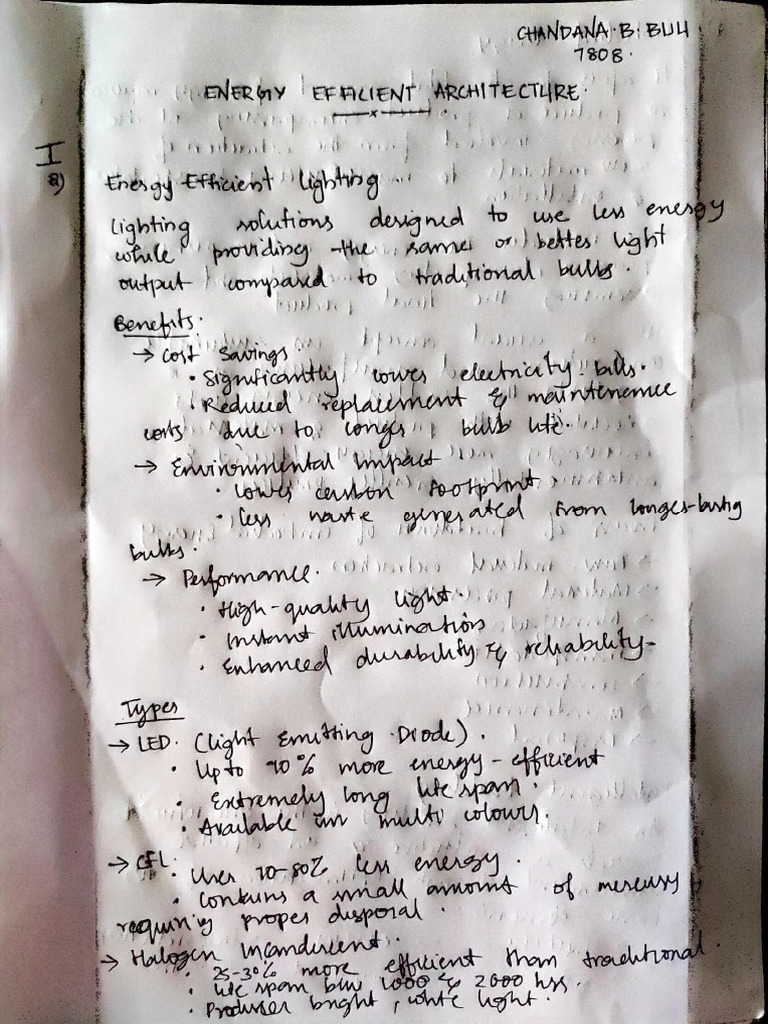 CHANDANA · B · BIJU ·
7808 ·
ENERGY EFFICIENT ARCHITECTURE ·
I
a)
Energy Efficient Lighting
Lighting solutions designed to use less energy
while providing the same or better light
output compared to traditional bulbs ·
Benefits ·
→ Cost Savings ·
· Significantly lower electricity bills ·
· Reduced replacement & maintenence
costs due to longer bulb life ·
→ Environmental Impact
· lower carbon footprint
· less waste generated from longer-lasting
bulbs ·
→ Performance ·
· High-quality light ·
· Instant illumination
· Enhanced durability & reliability -
Types
→ LED · (Light Emitting Diode) ·
· Up to 90% more energy - efficient
· Extremely long life span ·
· Available in multi colours ·
→ CFL ·
· Uses 70-80% less energy ·
· Contains a small amount of mercury
requiring proper disposal ·
→ Halogen Incandescent ·
· 25-30% more efficient than traditional ·
· life span b/w 1000 & 2000 hrs ·
· Produces bright, white light ·